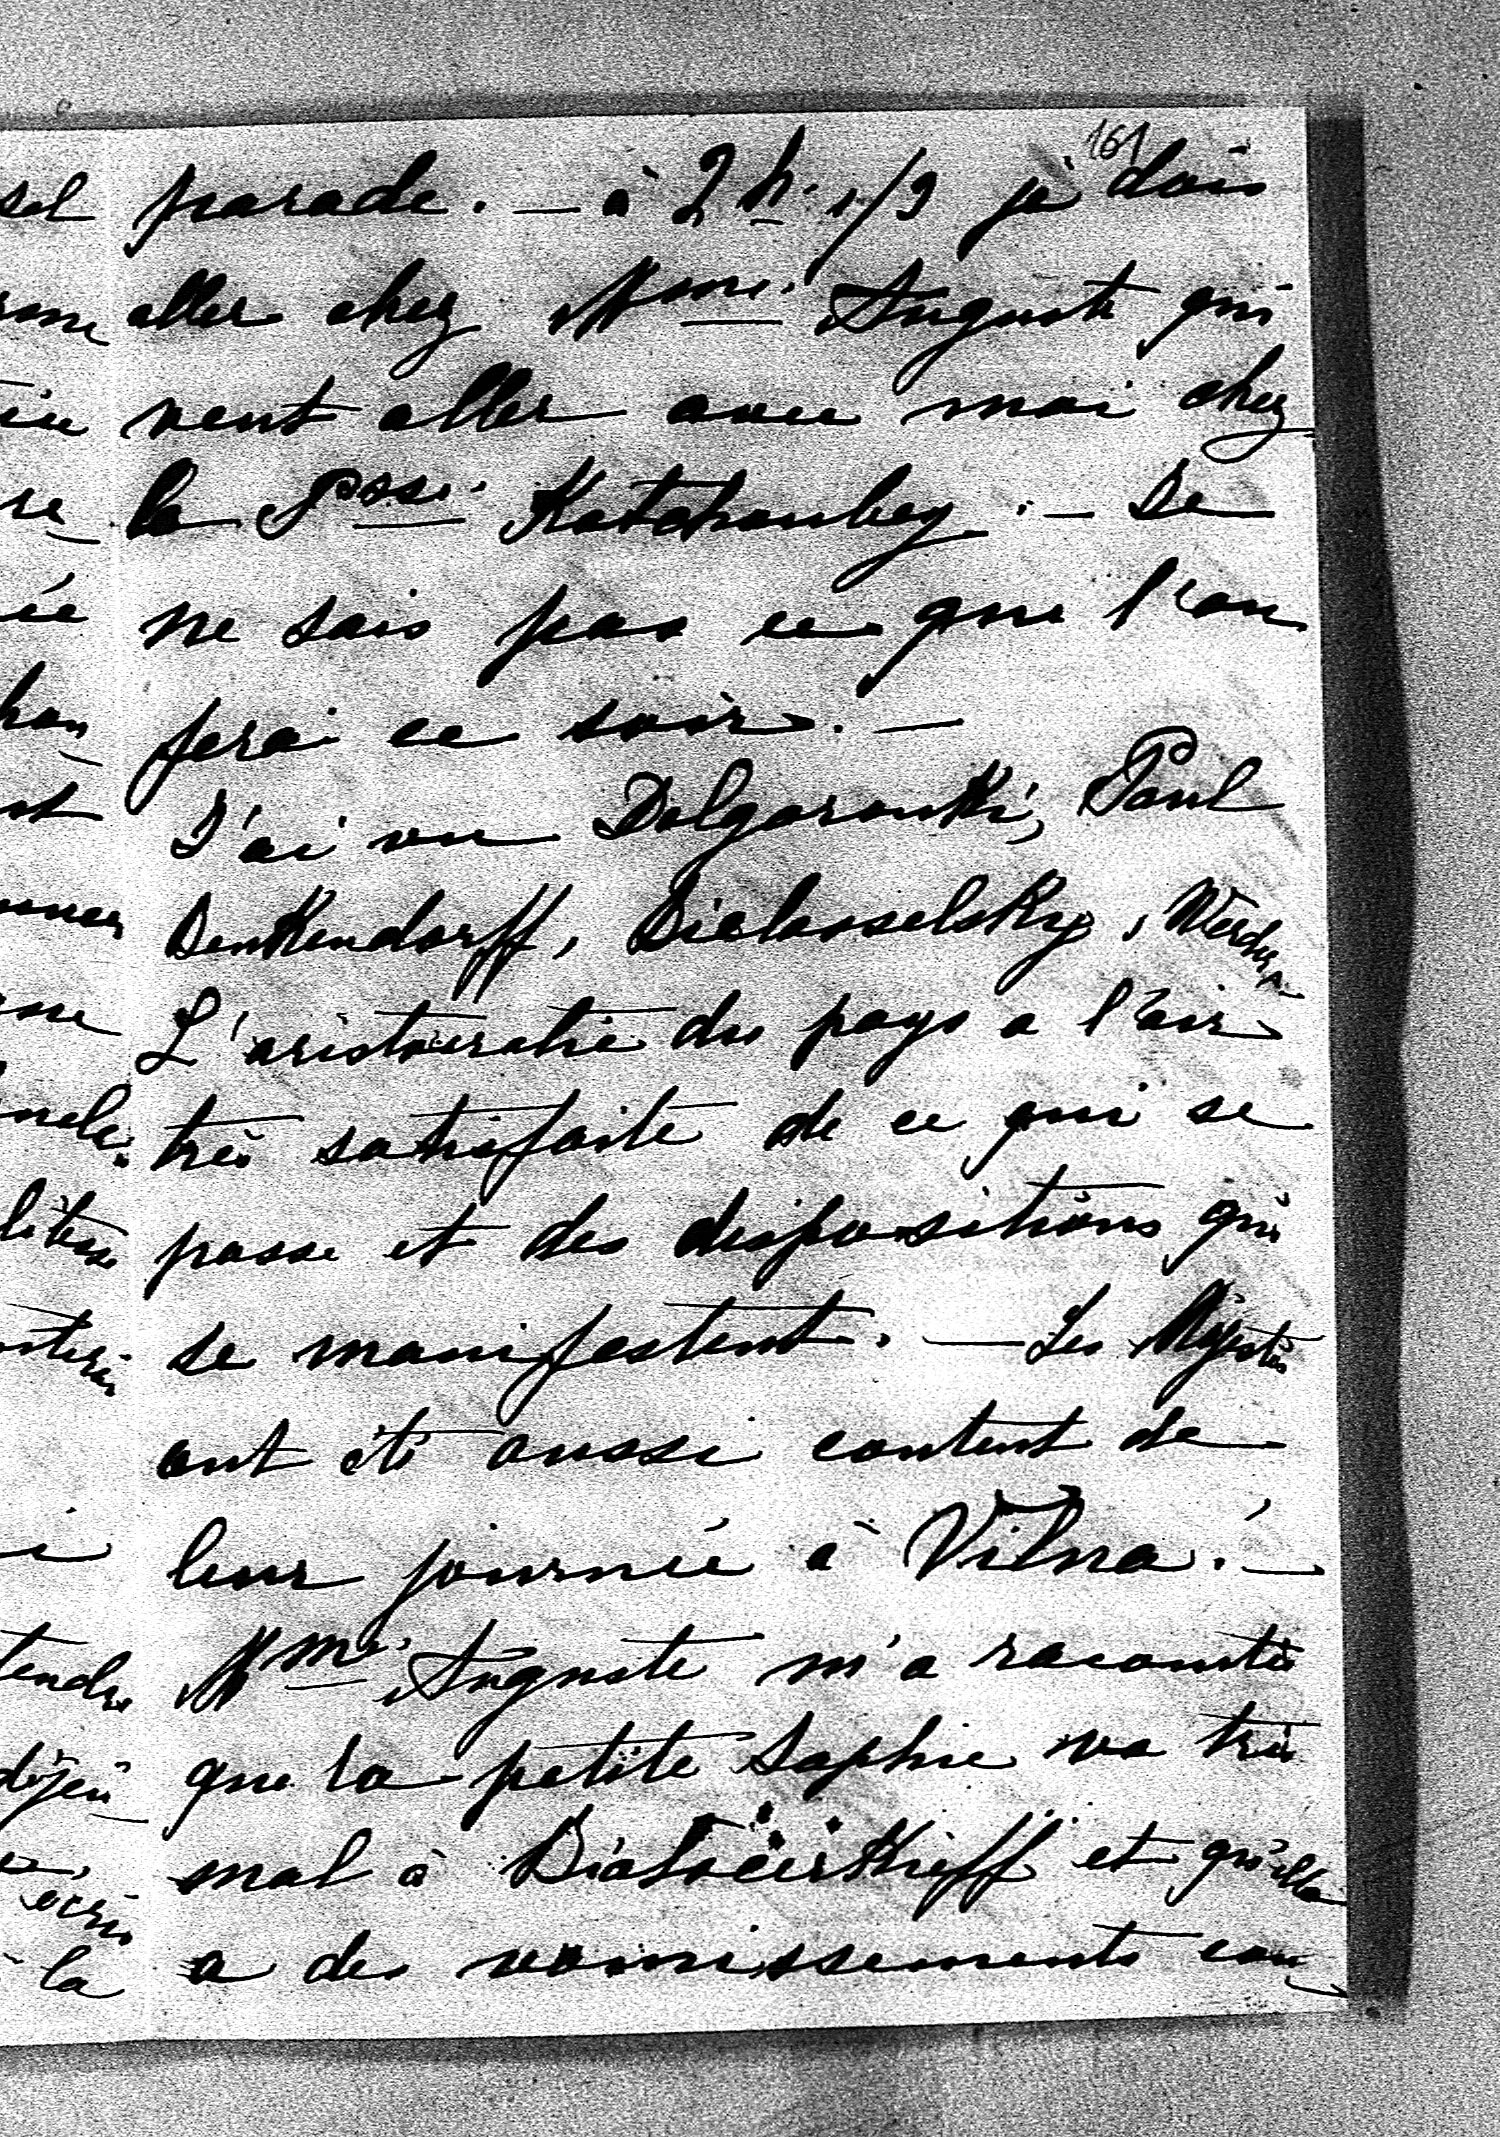 161
parade. — à 2 h. 1/2 je dois
aller chez Mme. Auguste qui
veut aller avec moi chez
la Psse. Kotchoubey. — Je
ne sais pas ce que l'on
ferai ce soir. —
J'ai vu Dolgorouki, Paul
Benkendorff, Bielosselsky, Werder.
L'aristocratie du pays a l'air
très satisfaite de ce qui se
passe et des dispositions qui
se manifestent. — Les Majestés
ont été aussi content de
leur journée à Vilna. —
Mme. Auguste m'a racontée
que la petite Sophie va très
mal à Biatocerkieff et qu'elle
a des vomissements con